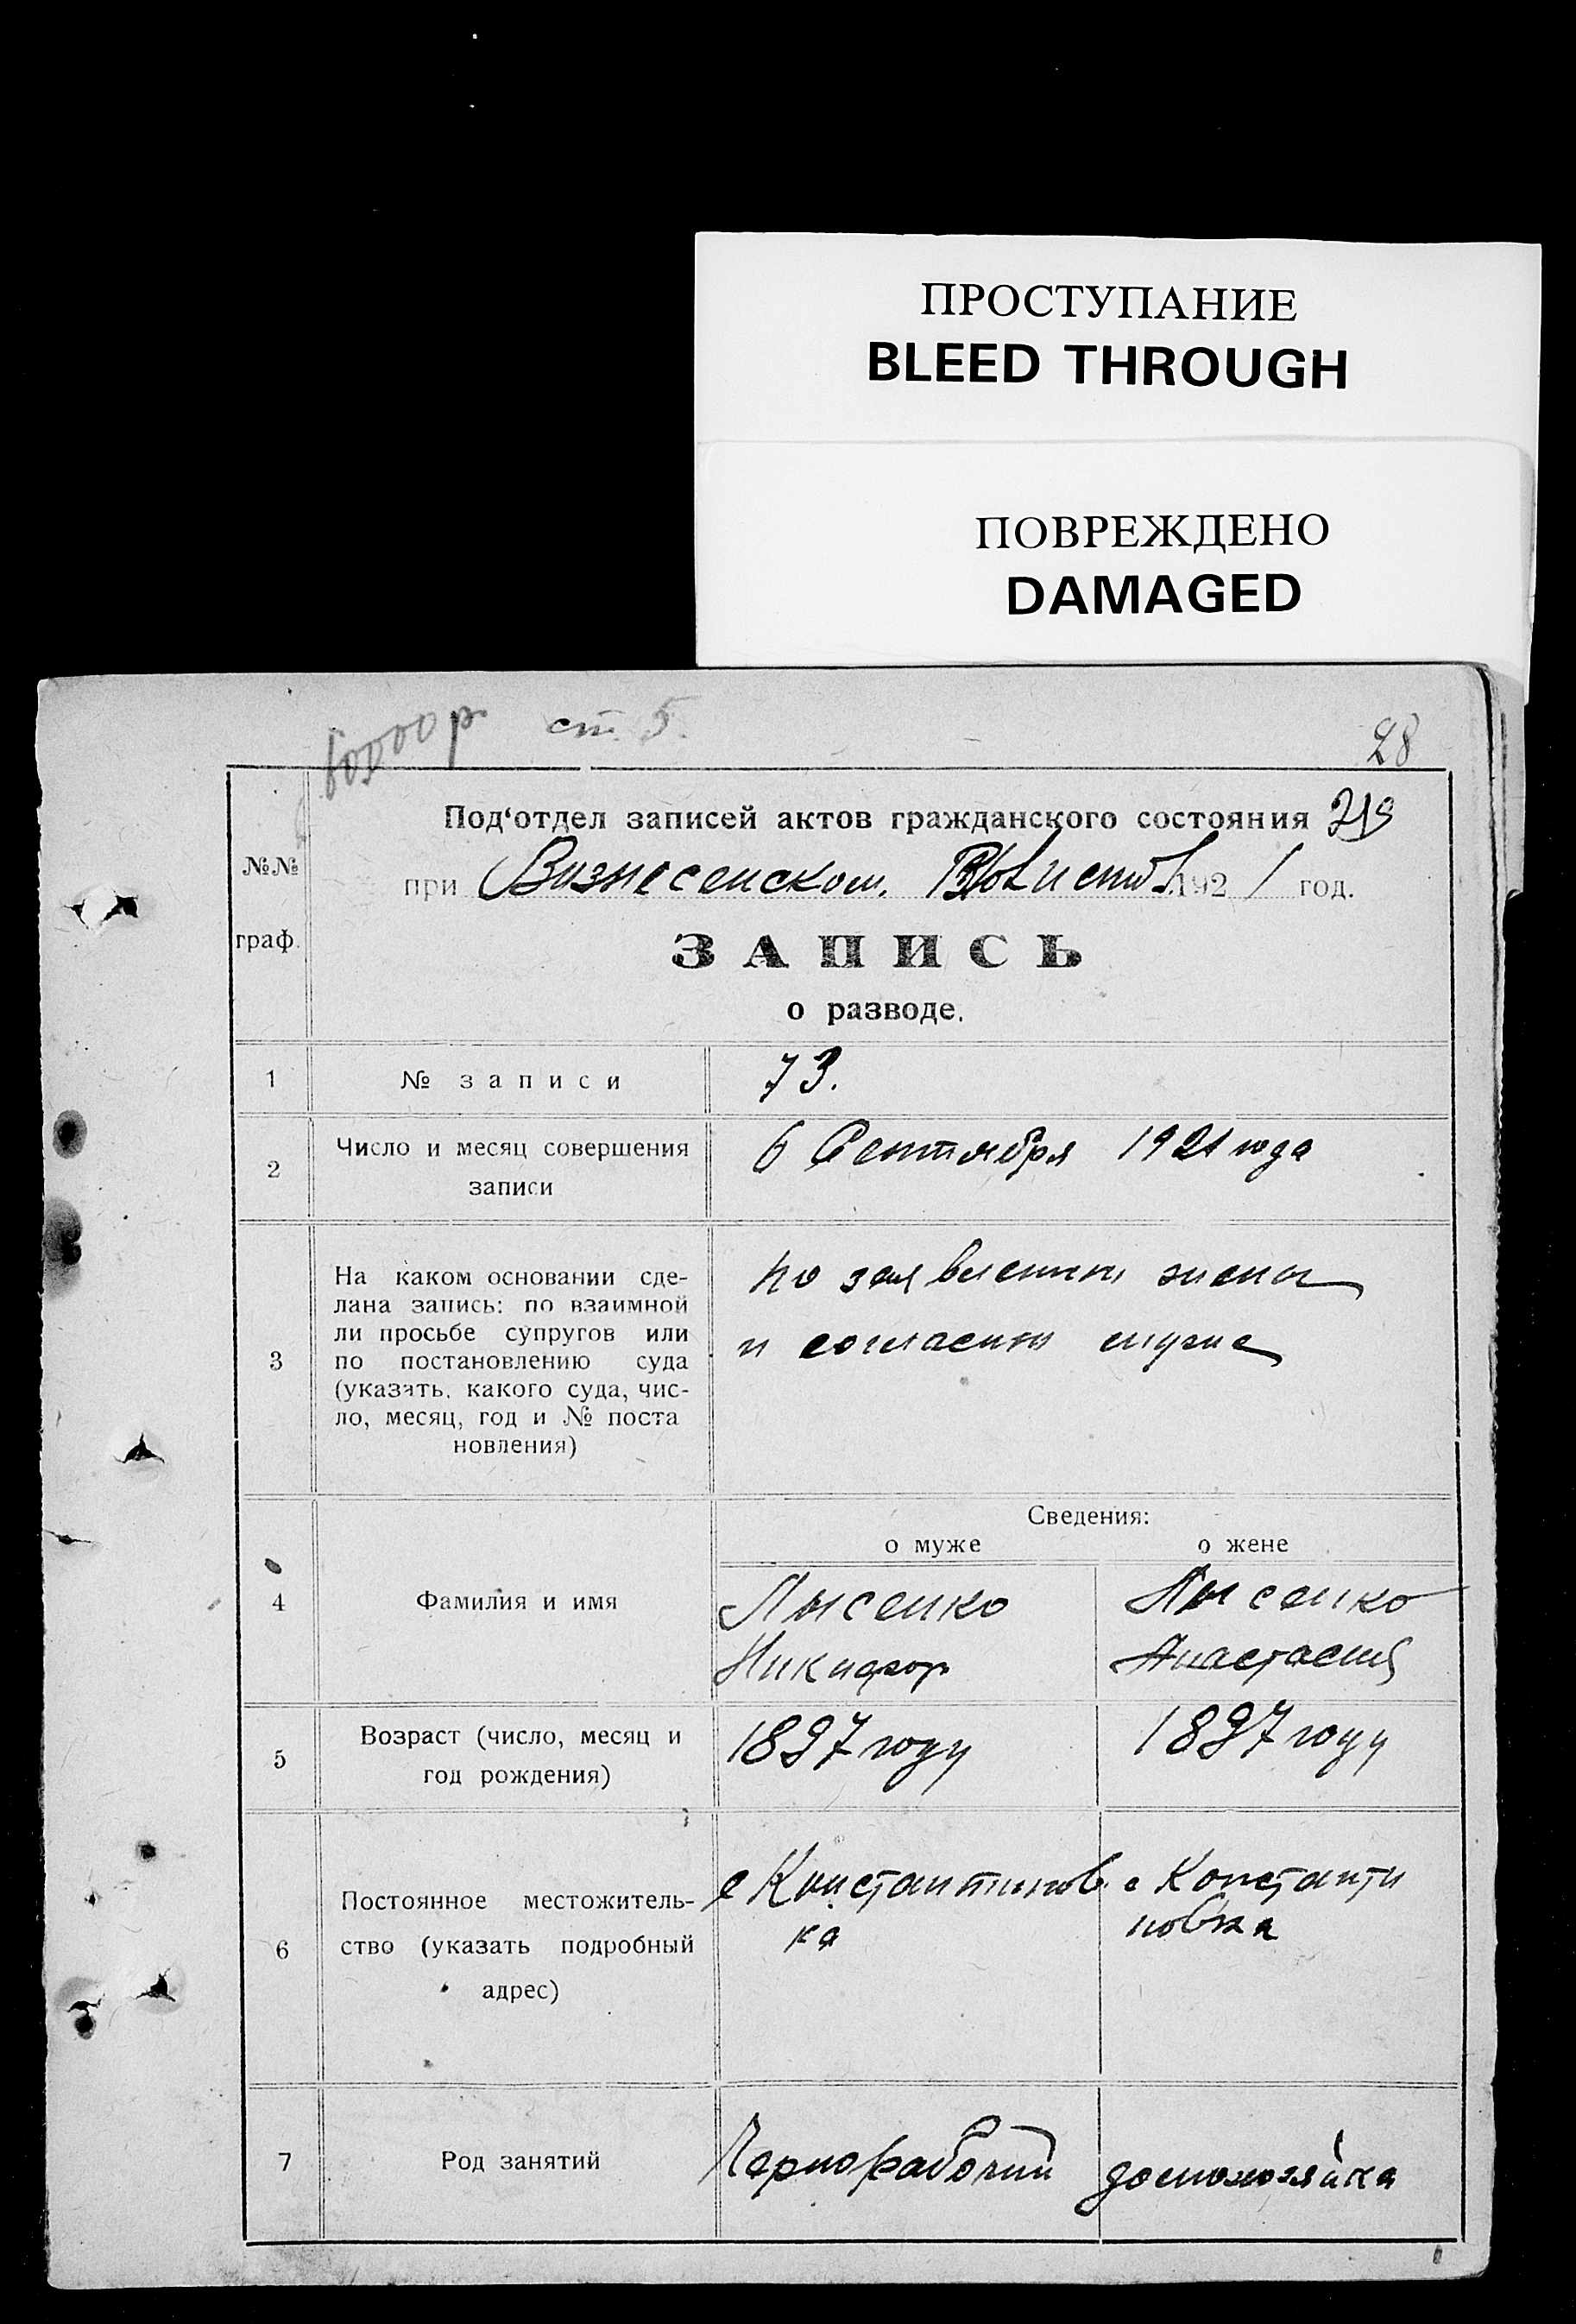 ПРОСТУПАНИЕ
BLEED THROUGH
ПОВРЕЖДЕНО
DAMAGED
ст. 5.
28
Под‘отдел записей актов гражданского состояния
при Вознесенском 1921 год.
№№
граф.
ЗАПИСЬ
о разводе.
1 № записи 73.
2 Число и месяц совершения 6 Сентября 1921 года
записи
3 На каком основании сде-
лана запись: по взаимной
ли просьбе супругов или
по постановлению суда
(указать, какого суда, чис-
ло, месяц, год и № поста
новления)
по заявлению жены
и согласию мужа
Сведения:
о муже о жене
4 Фамилия и имя
Лысенко Лысенко
Никифор Анастасия
5 Возраст (число, месяц и
год рождения)
1897 году 1897 году
6 Постоянное местожитель-
ство (указать подробный
адрес)
с Константинов с Константи
ка новка
7 Род занятий Чернорабочий домохозяйка